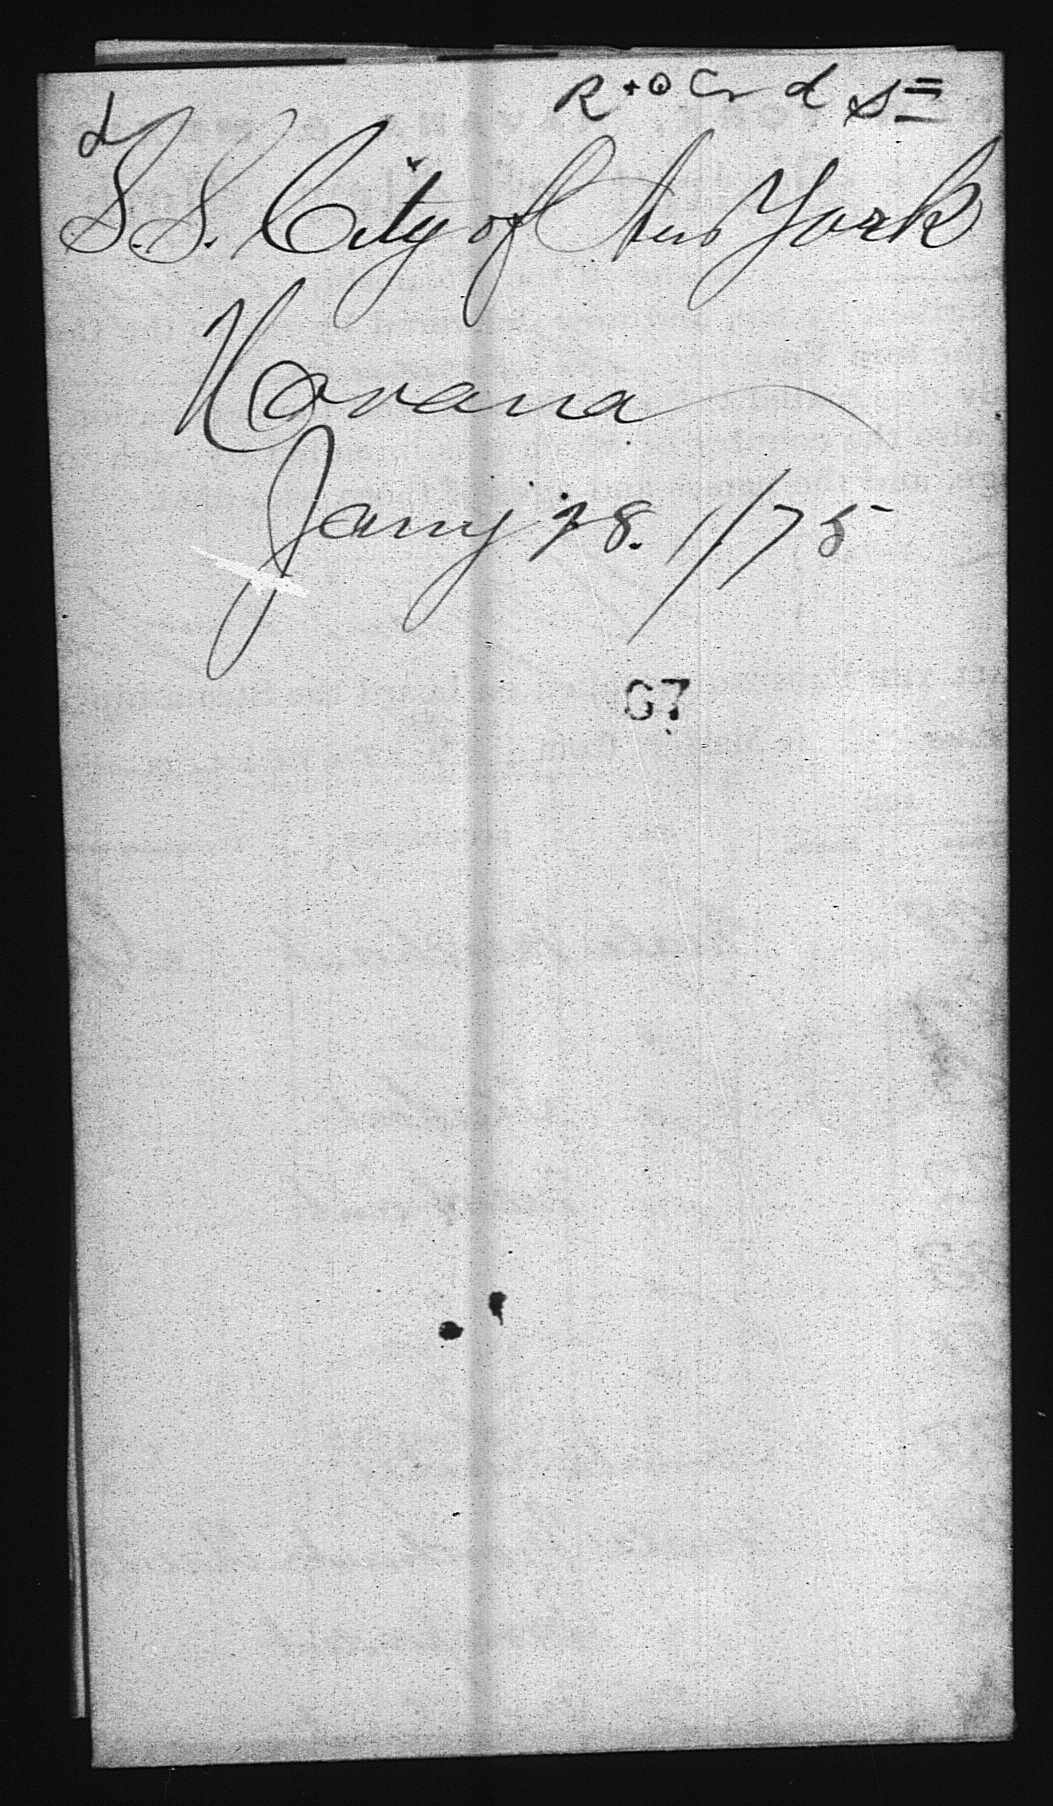 d
S.S. City of New York
Havana
Jany 28. /75
67